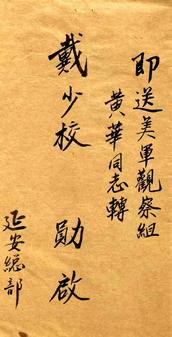 即送美軍觀察組
黃華同志轉
戴少校 勛啟
延安總部